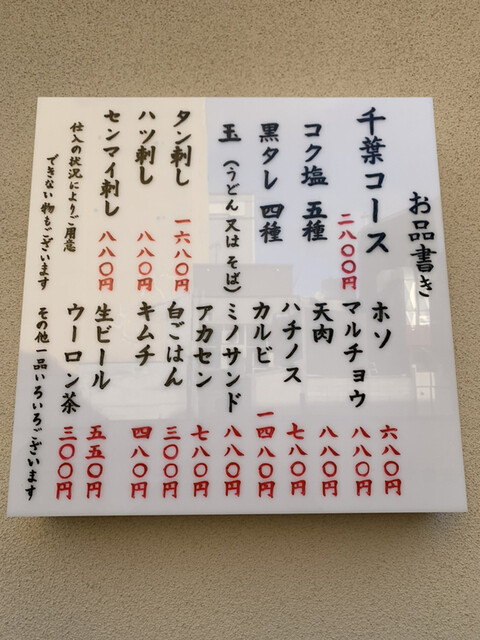 お品書き
千葉コース 二八〇〇円
コク塩 五種
黒タレ 四種
玉 (うどん又はそば)
タン刺し 一六八〇円
ハツ刺し 八八〇円
センマイ刺し 八八〇円
仕入の状況によりご用意
できない物もございます
ホソ 六八〇円
マルチョウ 八八〇円
天肉 八八〇円
ハチノス 七八〇円
カルビ 一四八〇円
ミノサンド 八八〇円
アカセン 七八〇円
白ごはん 三〇〇円
キムチ 四八〇円
生ビール 五五〇円
ウーロン茶 三〇〇円
その他一品いろいろございます